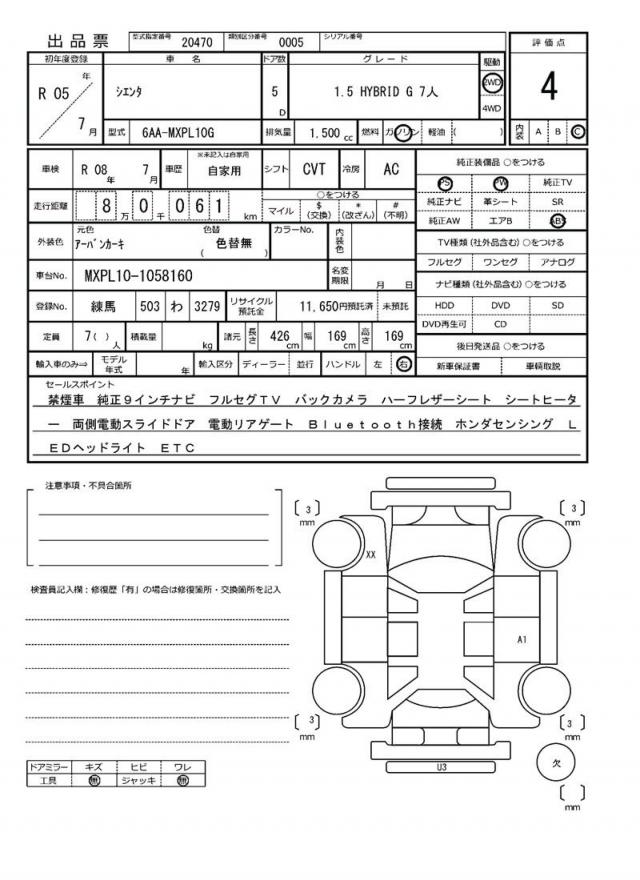 出品票 型式指定番号 20470 類別区分番号 0005 シリアル番号
評価点
初年度登録 車名 ドア数 グレード 駆動
R 05 年 シエンタ 5 D 1.5 HYBRID G 7人 2WD 4
7 月 4WD
型式 6AA-MXPL10G 排気量 1.500 cc 燃料 ガソリン 軽油 ( ) 内装 A B C
車検 R 08 年 7 月 車歴 ※未記入は自家用 自家用 シフト CVT 冷房 AC 純正装備品 ○をつける
PS PW 純正TV
走行距離 8 万 0 千 0 6 1 km ○をつける
マイル $ (交換) * (改ざん) # (不明)
純正ナビ 革シート SR
純正AW エアB ABS
外装色 元色 アーバンカーキ 色替 ( 色替無 ) カラーNo. 内装色
TV種類 (社外品含む) ○をつける
フルセグ ワンセグ アナログ
車台No. MXPL10-1058160 名変期限 月 日
ナビ種類 (社外品含む) ○をつける
登録No. 練馬 503 わ 3279 リサイクル預託金 11,650円預託済 未預託
HDD DVD SD
DVD再生可 CD
定員 7( ) 人 積載量 kg 諸元 長さ 426 cm 幅 169 cm 高さ 169 cm
後日発送品 ○をつける
輸入車のみ⇒ モデル年式 年 輸入区分 ディーラー 並行 ハンドル 左 右 新車保証書 車輌取説
セールスポイント
禁煙車 純正9インチナビ フルセグTV バックカメラ ハーフレザーシート シートヒータ
ー 両側電動スライドドア 電動リアゲート Bluetooth接続 ホンダセンシング L
EDヘッドライト ETC
注意事項・不具合箇所
[ 3 ] mm [ 3 ] mm
XX
検査員記入欄：修復歴「有」の場合は修復箇所・交換箇所を記入
A1
[ 3 ] mm [ 3 ] mm
U3 欠
ドアミラー キズ ヒビ ワレ
工具 無 ジャッキ 無
[ ] mm